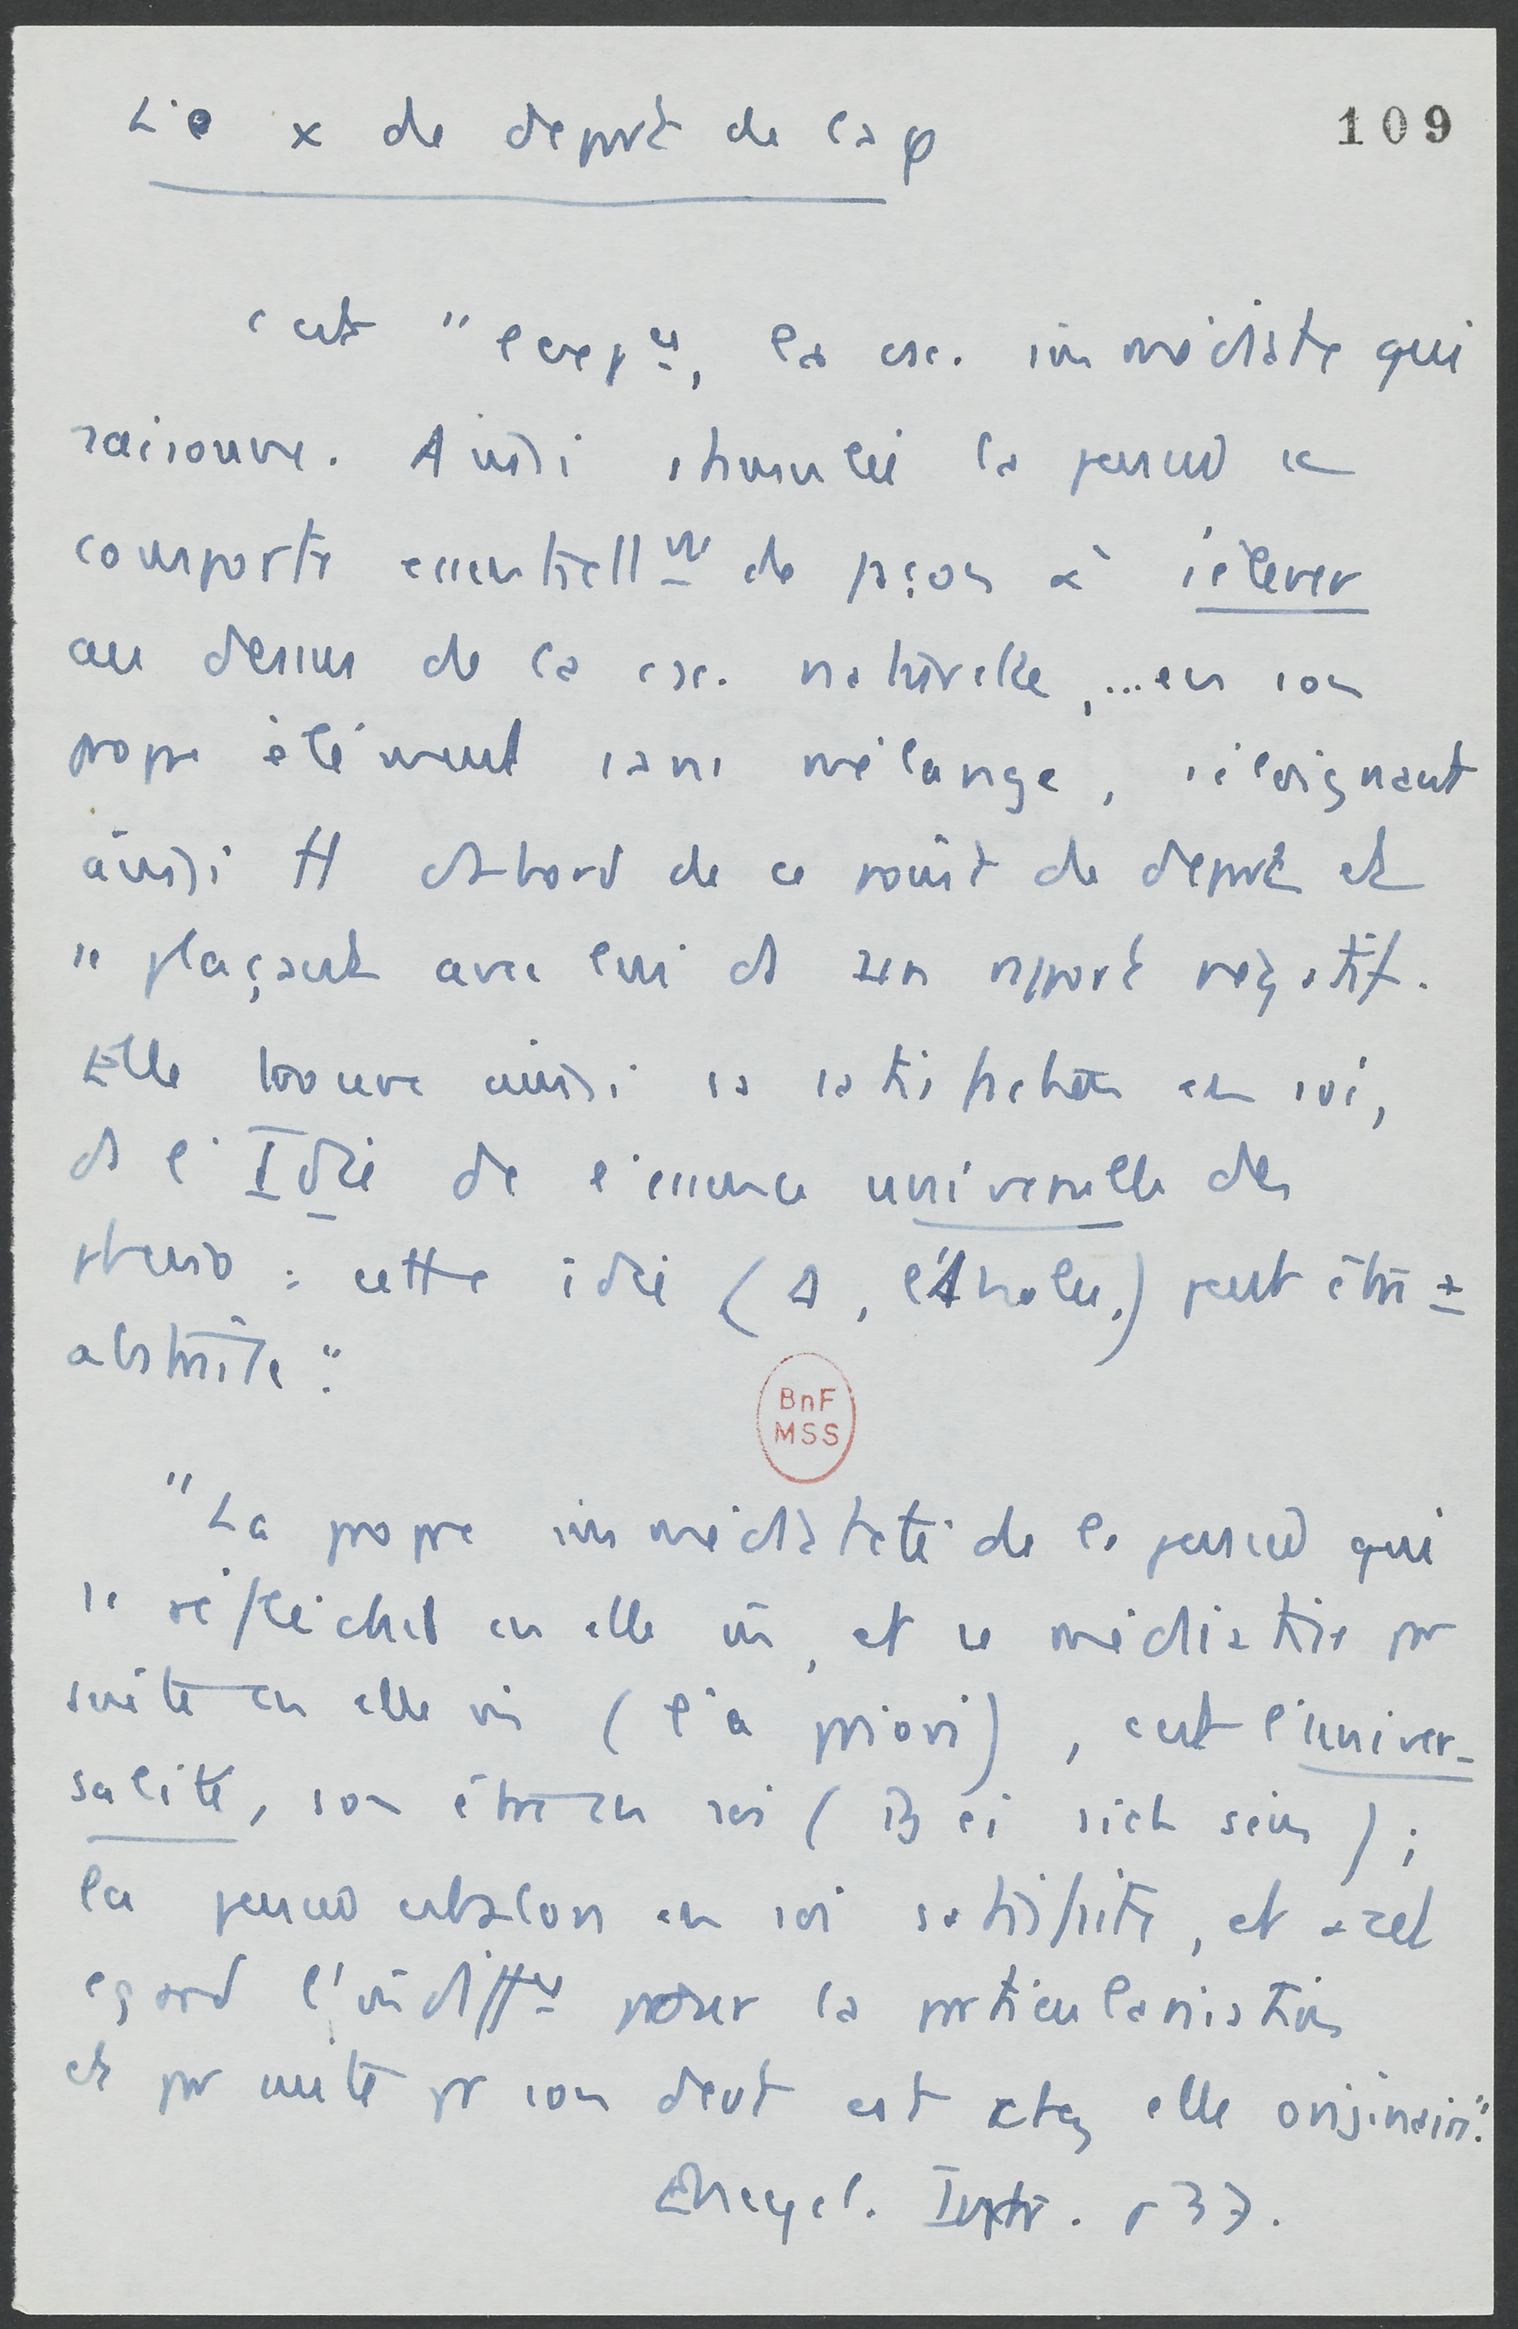 Le x de départ de la φ
109
c'est "l'exp^ce, la csc. immédiate qui
raisonne. Ainsi stimulée la pensée se
comporte essentiell^t de façon à s'élever
au dessus de la csc. naturelle, ... en son
propre élément sans mélange, s'éloignant
ainsi tt d'abord de ce point de départ et
se plaçant avec lui ds un rapport négatif.
Elle trouve ainsi sa satisfaction en soi,
ds l'Idée de l'essence universelle des
phéno : cette idée (          ) peut être ±
abstraite".
BnF
MSS
"La propre immédiateté de la pensée qui
se réfléchit en elle m, et se médiatise par
suite en elle m (l'a priori), est l'univer-
salité, son être en soi (Bei sich sein) ;
la pensée est alors en soi satisfaite, et à cet
égard l'indiff^ce pour la particularisation
et par suite pr son devt est chez elle originaire".
Encycl. Introd. p 37.